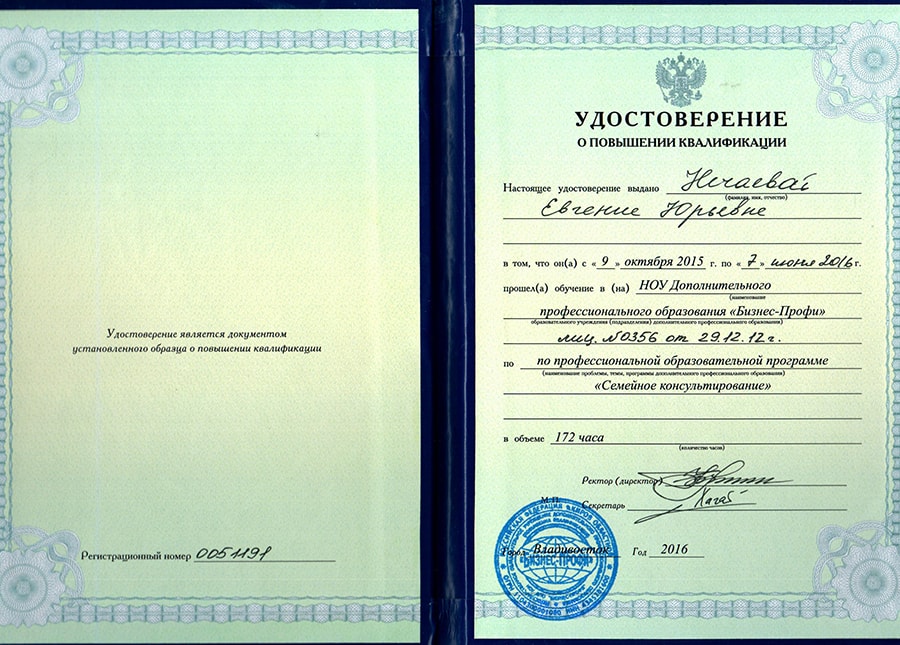 Удостоверение является документом
установленного образца о повышении квалификации
Регистрационный номер 0051191
УДОСТОВЕРЕНИЕ
О ПОВЫШЕНИИ КВАЛИФИКАЦИИ
Настоящее удостоверение выдано Нечаевой
(фамилия, имя, отчество)
Евгение Юрьевне
в том, что он(а) с «9» октября 2015 г. по «7» июня 2016 г.
прошел(а) обучение в (на) НОУ Дополнительного
(наименование
профессионального образования «Бизнес-Профи»
образовательного учреждения (подразделения) дополнительного профессионального образования)
лиц. №0356 от 29.12.12г.
по по профессиональной образовательной программе
(наименование проблемы, темы, программы дополнительного профессионального образования)
«Семейное консультирование»
в объеме 172 часа
(количество часов)
Ректор (директор)
М.П. Секретарь
Город Владивосток Год 2016
РОССИЙСКАЯ ФЕДЕРАЦИЯ
"БИЗНЕС-ПРОФИ"